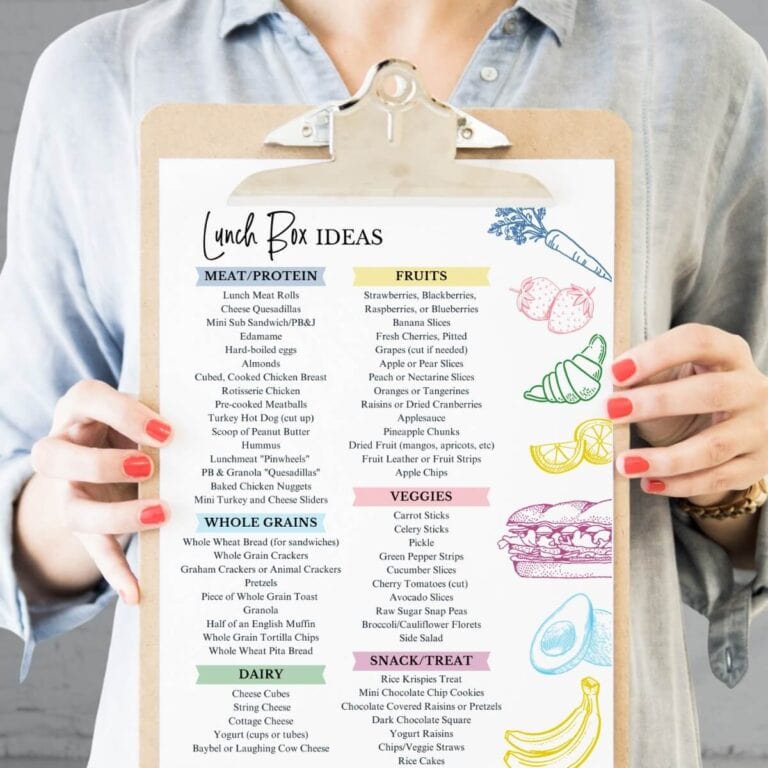 Lunch Box IDEAS
MEAT/PROTEIN
Lunch Meat Rolls
Cheese Quesadillas
Mini Sub Sandwich/PB&J
Edamame
Hard-boiled eggs
Almonds
Cubed, Cooked Chicken Breast
Rotisserie Chicken
Pre-cooked Meatballs
Turkey Hot Dog (cut up)
Scoop of Peanut Butter
Hummus
Lunchmeat "Pinwheels"
PB & Granola "Quesadillas"
Baked Chicken Nuggets
Mini Turkey and Cheese Sliders
WHOLE GRAINS
Whole Wheat Bread (for sandwiches)
Whole Grain Crackers
Graham Crackers or Animal Crackers
Pretzels
Piece of Whole Grain Toast
Granola
Half of an English Muffin
Whole Grain Tortilla Chips
Whole Wheat Pita Bread
DAIRY
Cheese Cubes
String Cheese
Cottage Cheese
Yogurt (cups or tubes)
Baybel or Laughing Cow Cheese
FRUITS
Strawberries, Blackberries,
Raspberries, or Blueberries
Banana Slices
Fresh Cherries, Pitted
Grapes (cut if needed)
Apple or Pear Slices
Peach or Nectarine Slices
Oranges or Tangerines
Raisins or Dried Cranberries
Applesauce
Pineapple Chunks
Dried Fruit (mangos, apricots, etc)
Fruit Leather or Fruit Strips
Apple Chips
VEGGIES
Carrot Sticks
Celery Sticks
Pickle
Green Pepper Strips
Cucumber Slices
Cherry Tomatoes (cut)
Avocado Slices
Raw Sugar Snap Peas
Broccoli/Cauliflower Florets
Side Salad
SNACK/TREAT
Rice Krispies Treat
Mini Chocolate Chip Cookies
Chocolate Covered Raisins or Pretzels
Dark Chocolate Square
Yogurt Raisins
Chips/Veggie Straws
Rice Cakes